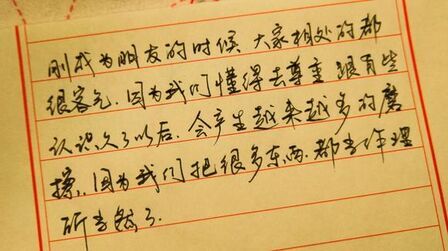 刚成为朋友的时候 大家相处的都
很客气.因为我们懂得去尊重 跟有些
认识久了以后.会产生越来越多的磨
擦.因为我们把很多东西.都当作理
所当然了.